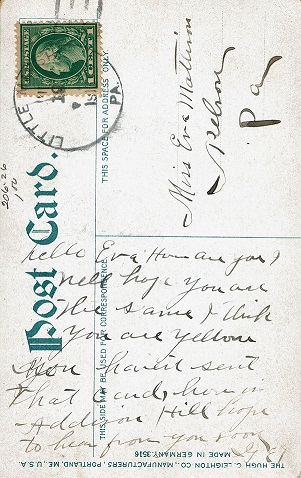 U.S. POSTAGE
1 CENT 1
LITTLE
PA.
THIS SPACE FOR ADDRESS ONLY.
Miss Eva Matteson
Nelson
Pa
Post Card.
THIS SIDE MAY BE USED FOR CORRESPONDENCE.
206-26
100
hello Eva How are you I
well hope you are
the same I think
you are yellow
you havent sent
that Card, how is
Addison Hill hope
to hear from you soon
THE HUGH C. LEIGHTON CO., MANUFACTURERS, PORTLAND, ME., U.S.A.
MADE IN GERMANY. 3516